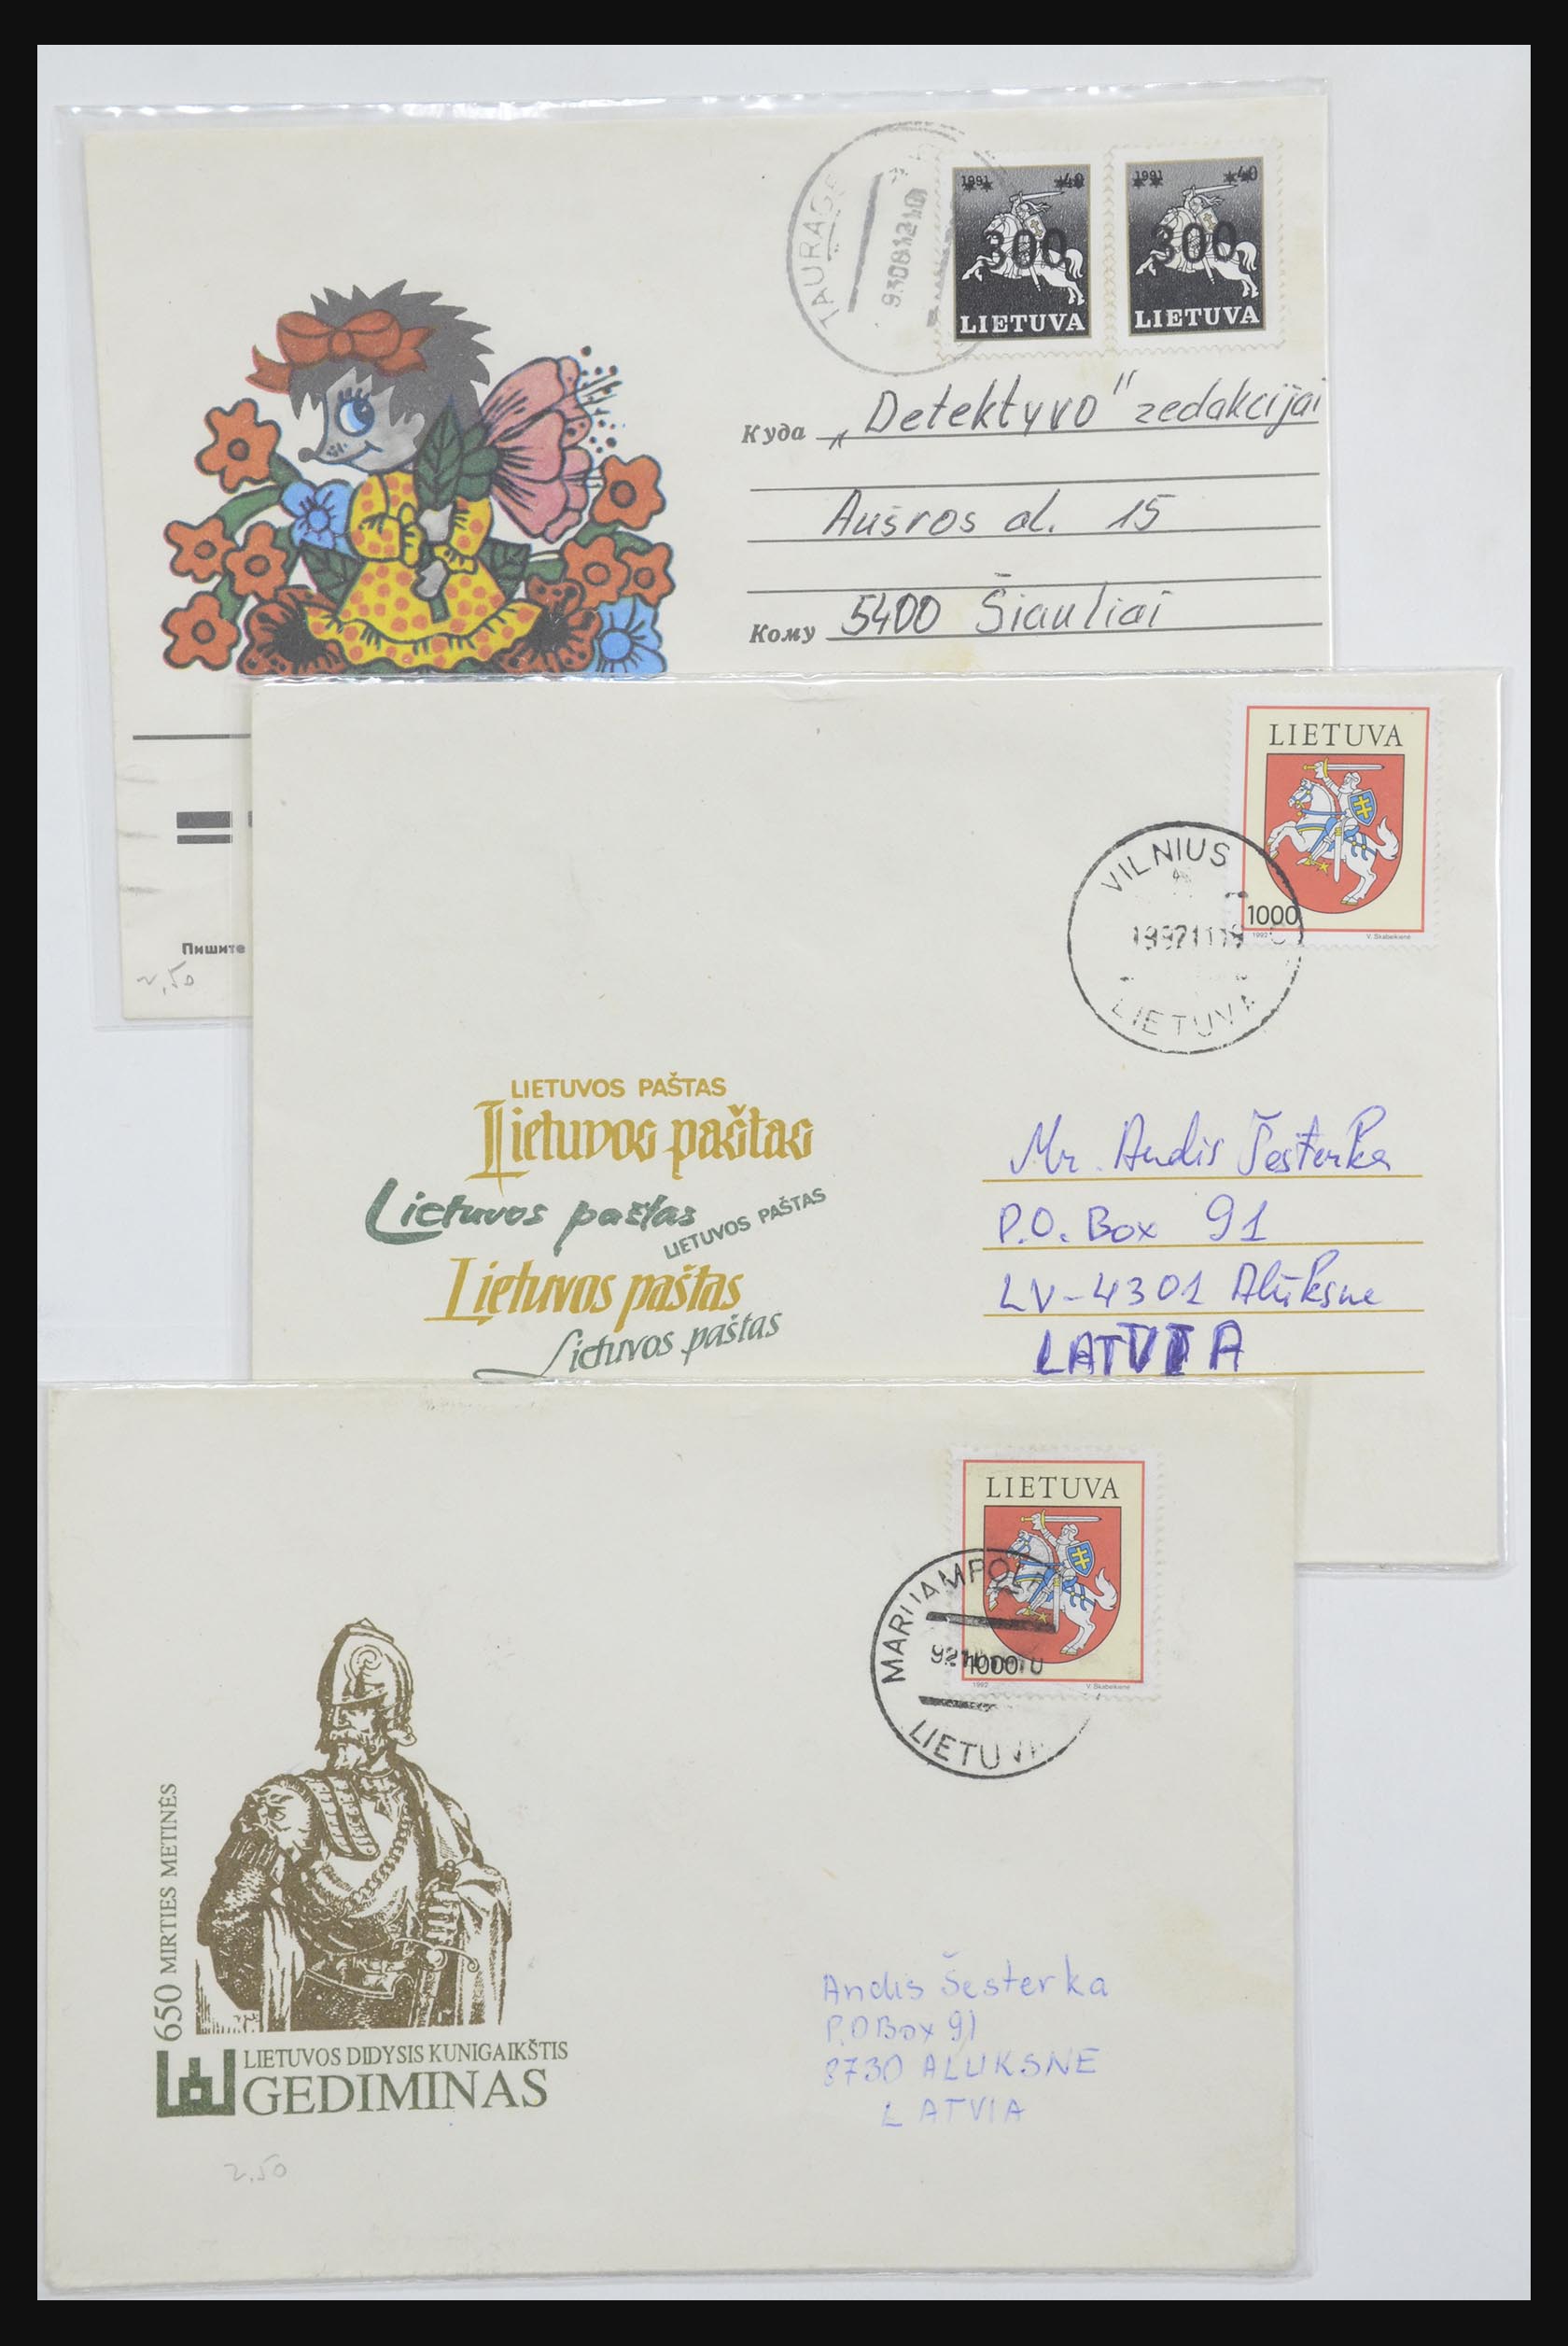 TAURAGĖ
1991 40
300
LIETUVA
1991 40
300
LIETUVA
Куда „Detektyvo" redakcijai
Aušros al. 15
Кому 5400 Šiauliai
Пишите
2,50
LIETUVA
1000
1992 V. Skabeikienė
VILNIUS
LIETUVA
LIETUVOS PAŠTAS
Lietuvos paštas
Lietuvos paštas
LIETUVOS PAŠTAS
Lietuvos paštas
Lietuvos paštas
Mr. Andis Šesterka
P.O. Box 91
LV-4301 Alūksne
LATVIA
LIETUVA
1000
1992 V. Skabeikienė
LIETUVA
650 MIRTIES METINĖS
LIETUVOS DIDYSIS KUNIGAIKŠTIS
GEDIMINAS
Andis Šesterka
P.O Box 91
8730 ALUKSNE
LATVIA
2.50